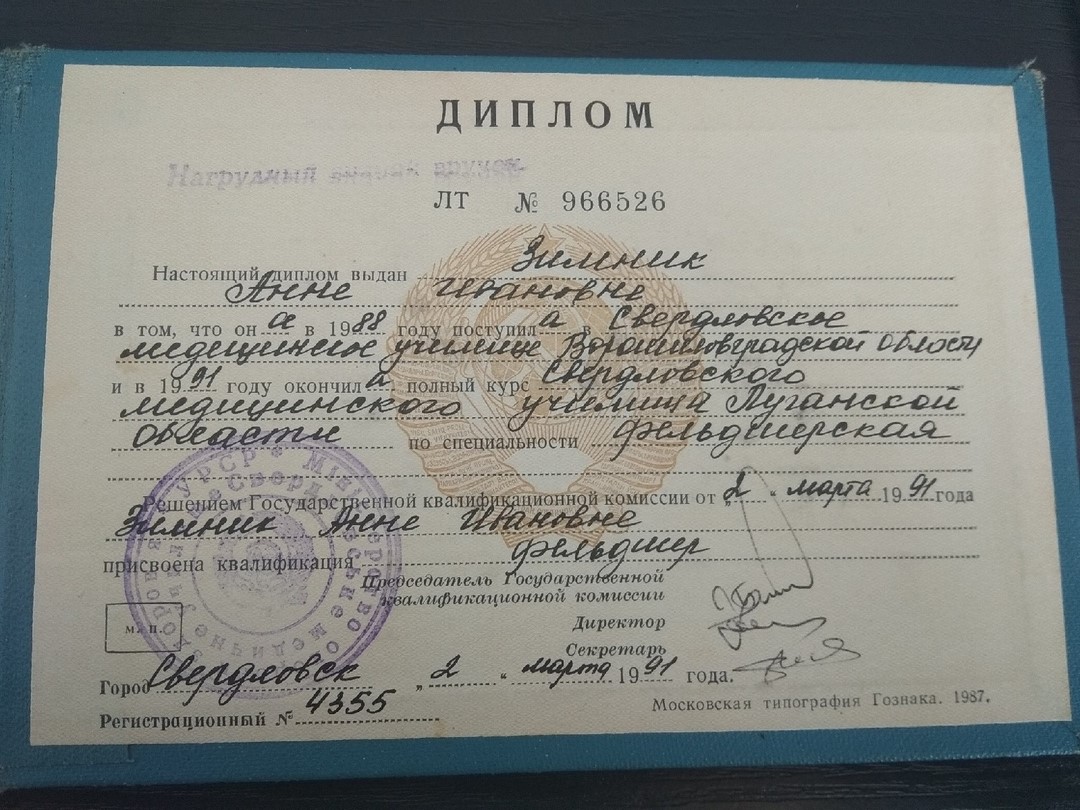 ДИПЛОМ
Нагрудный значок вручен
ЛТ № 966526
Настоящий диплом выдан Зимник
Анне Ивановне
в том, что он а в 1988 году поступил а в Свердловское
медицинское училище Ворошиловградской области
и в 1991 году окончил а полный курс Свердловского
медицинского училища Луганской
области по специальности фельдшерская
Решением Государственной квалификационной комиссии от „2“ марта 1991 года
Зимник Анне Ивановне
присвоена квалификация фельдшер
Председатель Государственной
квалификационной комиссии
Директор
Секретарь
М. П.
Город Свердловск „2“ марта 1991 года.
Регистрационный № 4355
Московская типография Гознака. 1987.